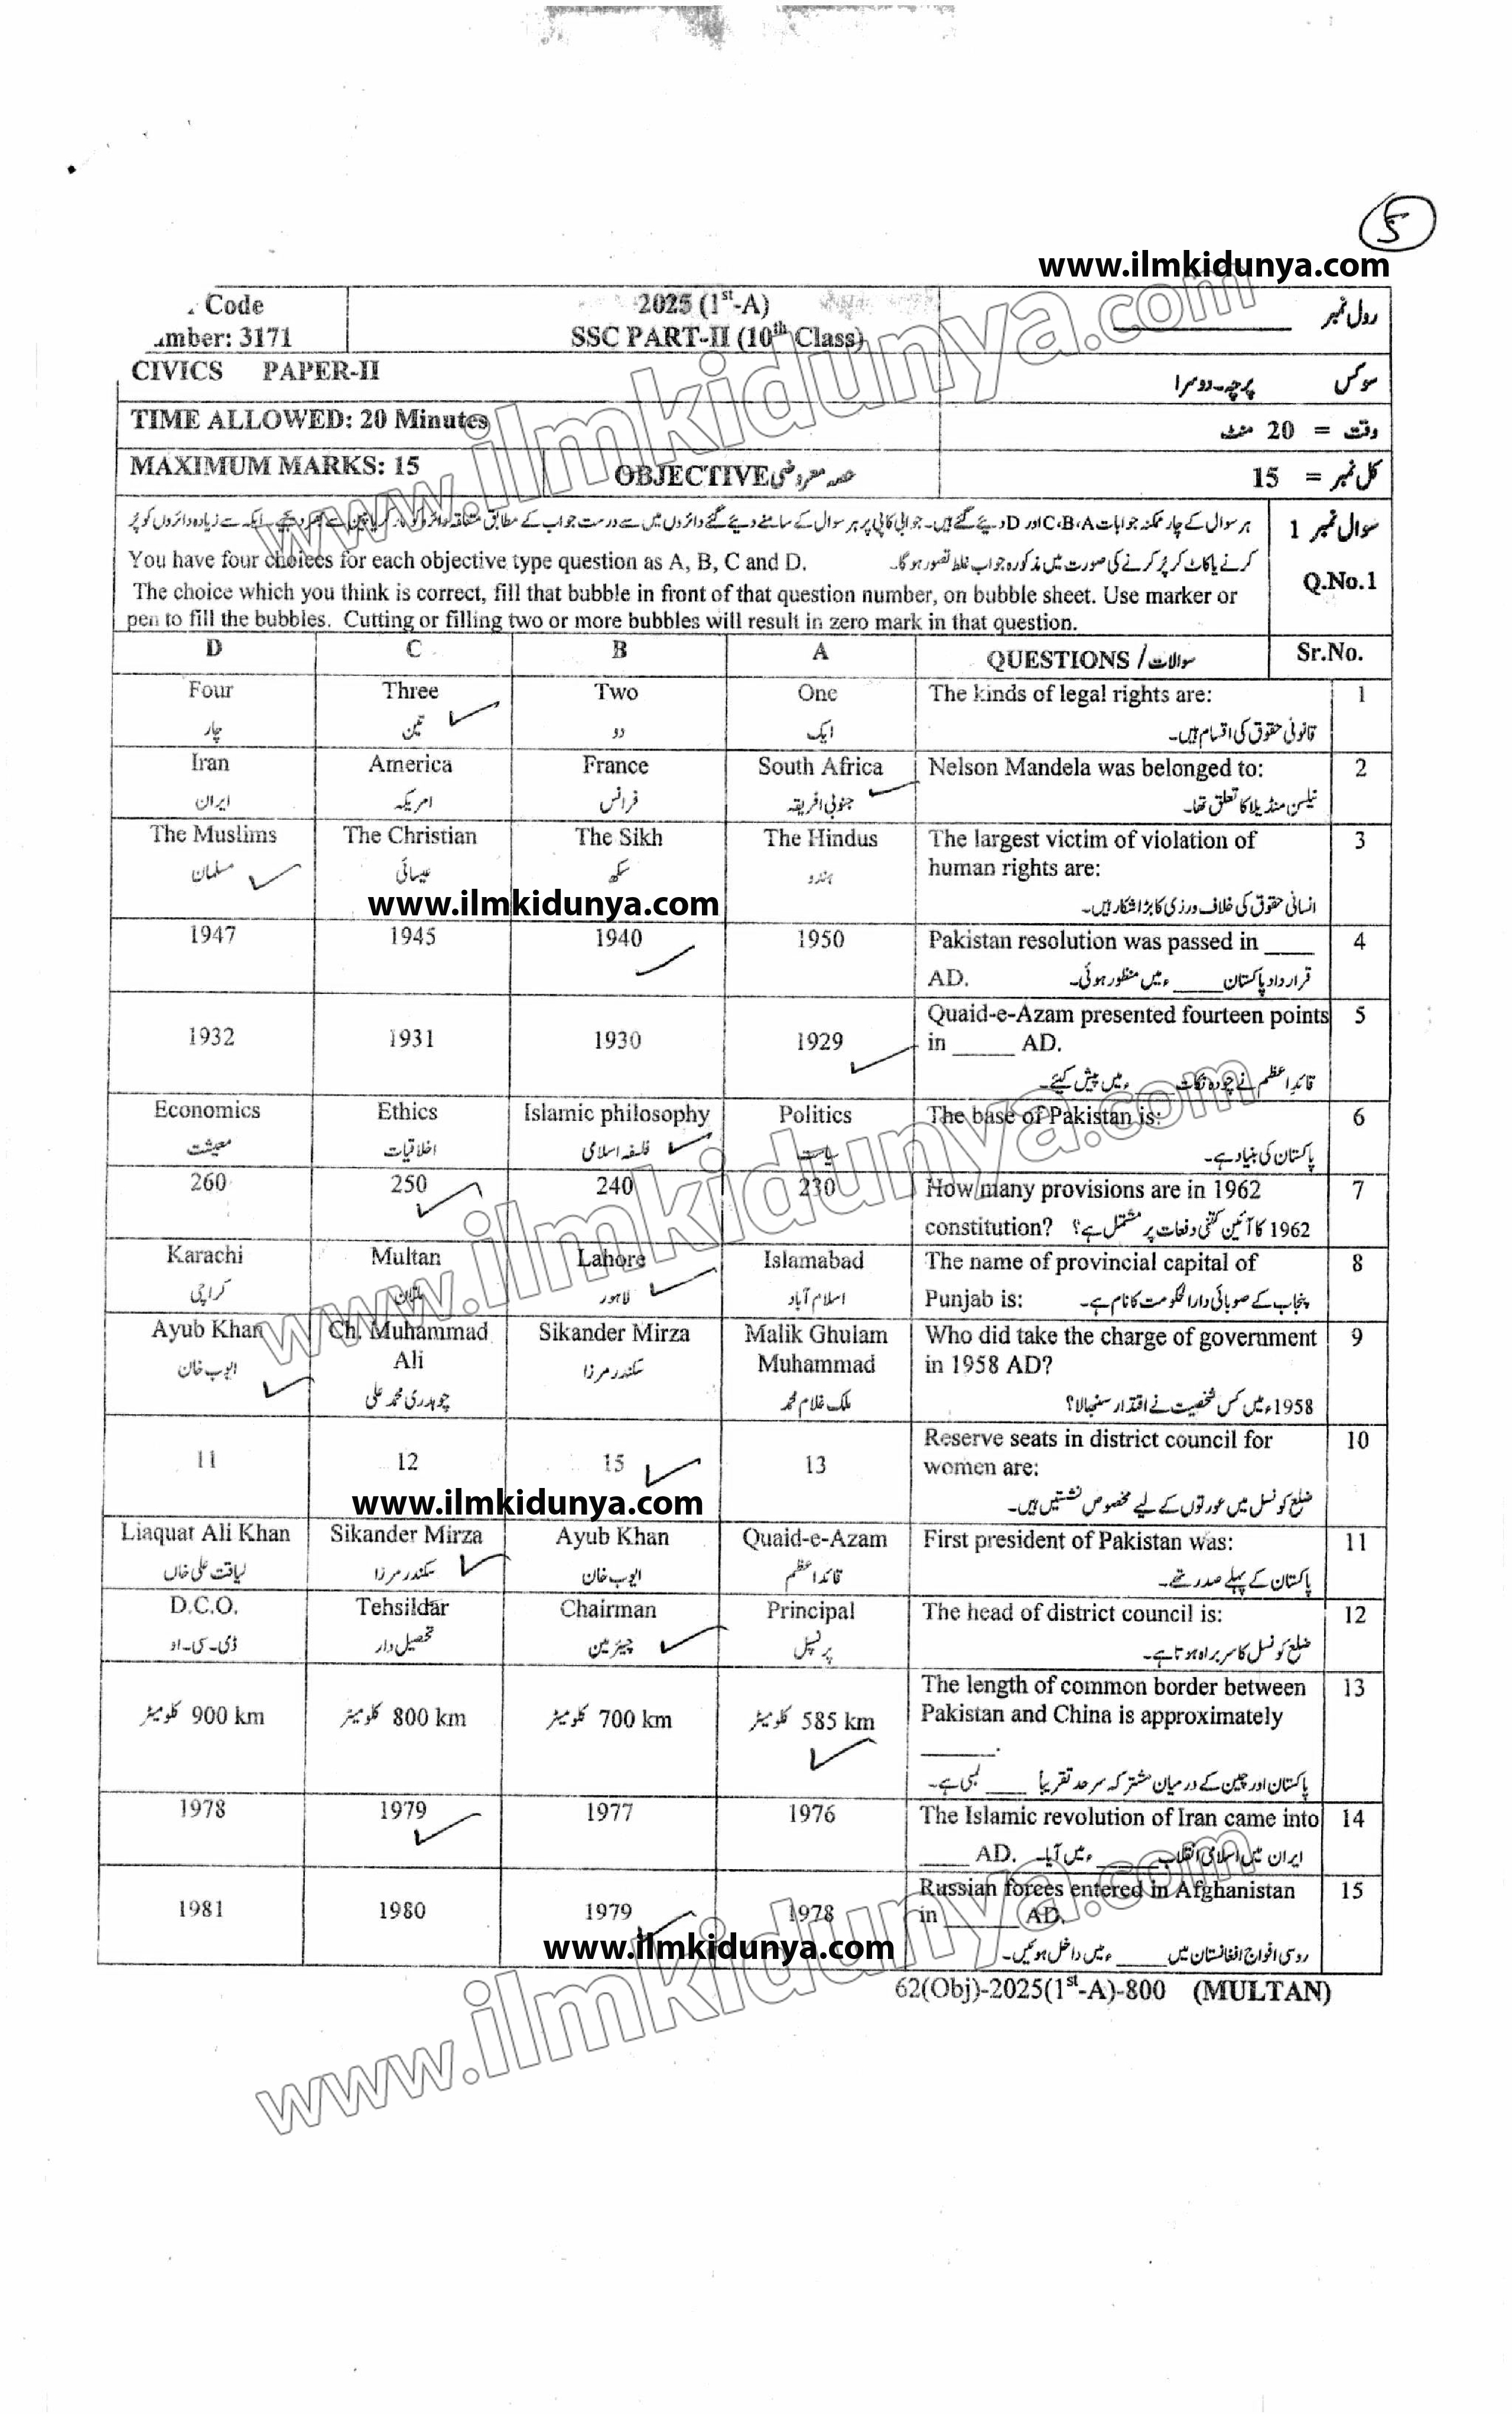 5
www.ilmkidunya.com
Code
2025 (1st-A)
رول نمبر
mber: 3171
SSC PART-II (10th Class)
CIVICS PAPER-II
سوکس پرچہ۔دوسرا
TIME ALLOWED: 20 Minutes
وقت = 20 منٹ
MAXIMUM MARKS: 15
OBJECTIVE حصہ معروضی
کل نمبر = 15
سوال نمبر 1
Q.No.1
ہر سوال کے چار ممکنہ جوابات A،B،C اور D دیئے گئے ہیں۔ جوابی کاپی پر ہر سوال کے سامنے دیئے گئے دائروں میں سے درست جواب کے مطابق متعلقہ دائرہ کو مارکر یا پین سے بھر دیجئے۔ ایک سے زیادہ دائروں کو پُر
کرنے یا کاٹ کر پُر کرنے کی صورت میں مذکورہ جواب غلط تصور ہو گا۔
You have four choices for each objective type question as A, B, C and D.
The choice which you think is correct, fill that bubble in front of that question number, on bubble sheet. Use marker or
pen to fill the bubbles. Cutting or filling two or more bubbles will result in zero mark in that question.
D C B A QUESTIONS / سوالات Sr.No.
Four Three Two One The kinds of legal rights are: 1
چار تین دو ایک قانونی حقوق کی اقسام ہیں۔
Iran America France South Africa Nelson Mandela was belonged to: 2
ایران امریکہ فرانس جنوبی افریقہ نیلسن منڈیلا کا تعلق تھا۔
The Muslims The Christian The Sikh The Hindus The largest victim of violation of 3
human rights are:
مسلمان عیسائی سکھ ہندو
www.ilmkidunya.com
انسانی حقوق کی خلاف ورزی کا بڑا شکار ہیں۔
1947 1945 1940 1950 Pakistan resolution was passed in ____ 4
AD. قرارداد پاکستان ____ ء میں منظور ہوئی۔
Quaid-e-Azam presented fourteen points 5
1932 1931 1930 1929 in _____ AD.
قائداعظم نے چودہ نکات ____ ء میں پیش کیئے۔
Economics Ethics Islamic philosophy Politics The base of Pakistan is: 6
معیشت اخلاقیات فلسفہ اسلامی سیاست پاکستان کی بنیاد ہے۔
260 250 240 230 How many provisions are in 1962 7
constitution? 1962 کا آئین کتنی دفعات پر مشتمل ہے؟
Karachi Multan Lahore Islamabad The name of provincial capital of 8
Punjab is: پنجاب کے صوبائی دارالحکومت کا نام ہے۔
کراچی ملتان لاہور اسلام آباد
Ayub Khan Ch. Muhammad Ali Sikander Mirza Malik Ghulam Muhammad Who did take the charge of government 9
in 1958 AD?
ایوب خان چوہدری محمد علی سکندر مرزا ملک غلام محمد 1958ء میں کس شخصیت نے اقتدار سنبھالا؟
Reserve seats in district council for 10
11 12 15 13 women are:
www.ilmkidunya.com
ضلع کونسل میں عورتوں کے لیے مخصوص نشستیں ہیں۔
Liaquat Ali Khan Sikander Mirza Ayub Khan Quaid-e-Azam First president of Pakistan was: 11
لیاقت علی خاں سکندر مرزا ایوب خان قائداعظم پاکستان کے پہلے صدر تھے۔
D.C.O. Tehsildar Chairman Principal The head of district council is: 12
ڈی۔سی۔او تحصیل دار چیئرمین پرنسپل ضلع کونسل کا سربراہ ہوتا ہے۔
The length of common border between 13
900 km کلومیٹر 800 km کلومیٹر 700 km کلومیٹر 585 km کلومیٹر Pakistan and China is approximately
______.
پاکستان اور چین کے درمیان مشترکہ سرحد تقریباً ____ لمبی ہے۔
1978 1979 1977 1976 The Islamic revolution of Iran came into 14
____ AD. ایران میں اسلامی انقلاب ____ ء میں آیا۔
Russian forces entered in Afghanistan 15
1981 1980 1979 1978 in ______ AD.
www.ilmkidunya.com
روسی افواج افغانستان میں ____ ء میں داخل ہوئیں۔
62(Obj)-2025(1st-A)-800 (MULTAN)
www.ilmkidunya.com
www.ilmkidunya.com
www.ilmkidunya.com